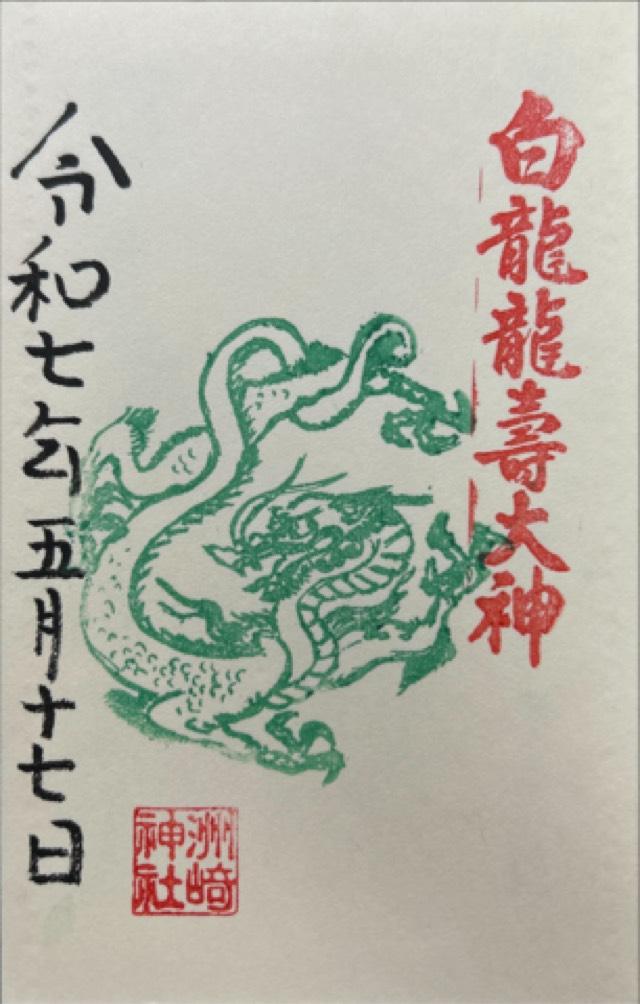 白龍龍壽大神
令和七年五月十七日
洲崎
神社